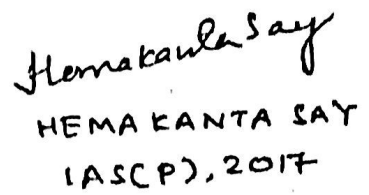 Hemakanta Say
HEMA KANTA SAY
IAS(P), 2017